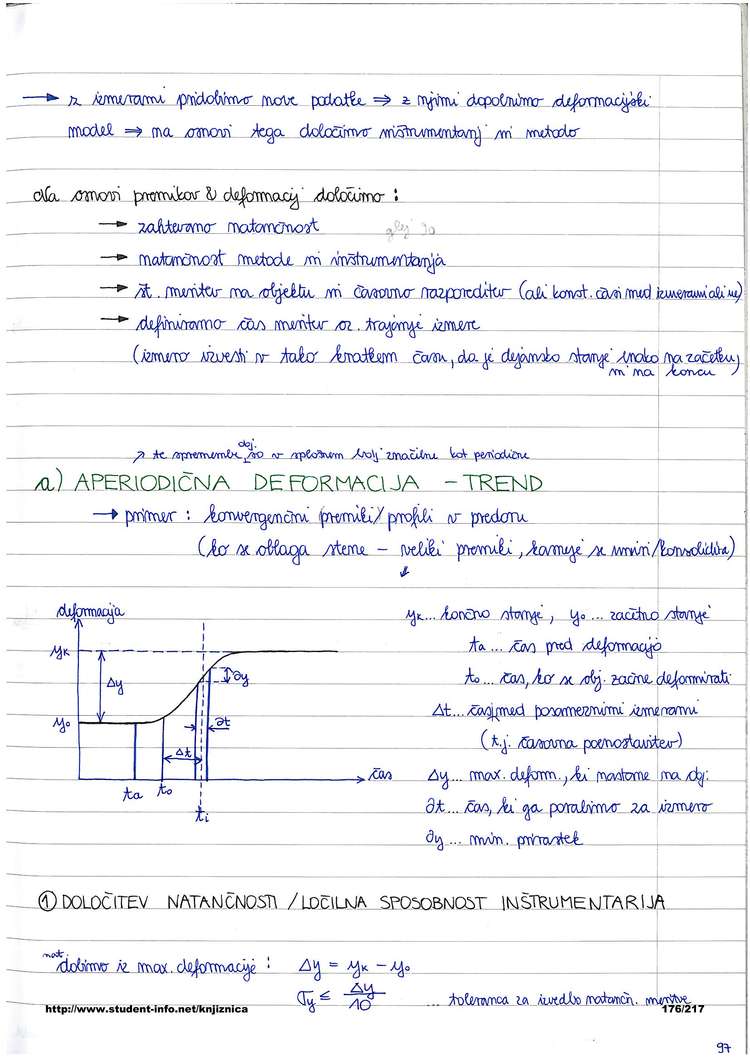 → z izmerami pridobimo nove podatke ⇒ z njimi dopolnimo deformacijski
model ⇒ na osnovi tega določimo inštrumentarij in metodo
Na osnovi premikov & deformacij določimo :
→ zahtevano natančnost
→ natančnost metode in inštrumentarija
→ št. meritev na objektu in časovno razporeditev (ali konst. časi med izmerami ali ne)
→ definiramo čas meritev oz. trajanje izmere
(izmero izvesti v tako kratkem času, da je dejansko stanje enako na začetku
in na koncu)
↗ te spremembe obj. so v splošnem bolj značilne kot periodične
a) APERIODIČNA DEFORMACIJA - TREND
→ primer : konvergenčni premiki / profili v predoru
(ko se obloga stene - veliki premiki, kasneje se umiri/konsolidira)
deformacija
yk
Δy
y₀
∂y
∂t
Δt
čas
ta
t₀
ti
yk ... končno stanje, y₀ ... začetno stanje
ta ... čas pred deformacijo
t₀ ... čas, ko se obj. začne deformirati
Δt ... časi med posameznimi izmerami
(t.j. časovna poenostavitev)
Δy ... max. deform., ki nastane na obj.
∂t ... čas, ki ga porabimo za izmero
∂y ... min. prirastek
① DOLOČITEV NATANČNOSTI / LOČILNA SPOSOBNOST INŠTRUMENTARIJA
nat. dobimo iz max. deformacije : Δy = yk - y₀
σy ≤ Δy/10 ... toleranca za izvedbo natančn. meritve
http://www.student-info.net/knjiznica
176/217
97